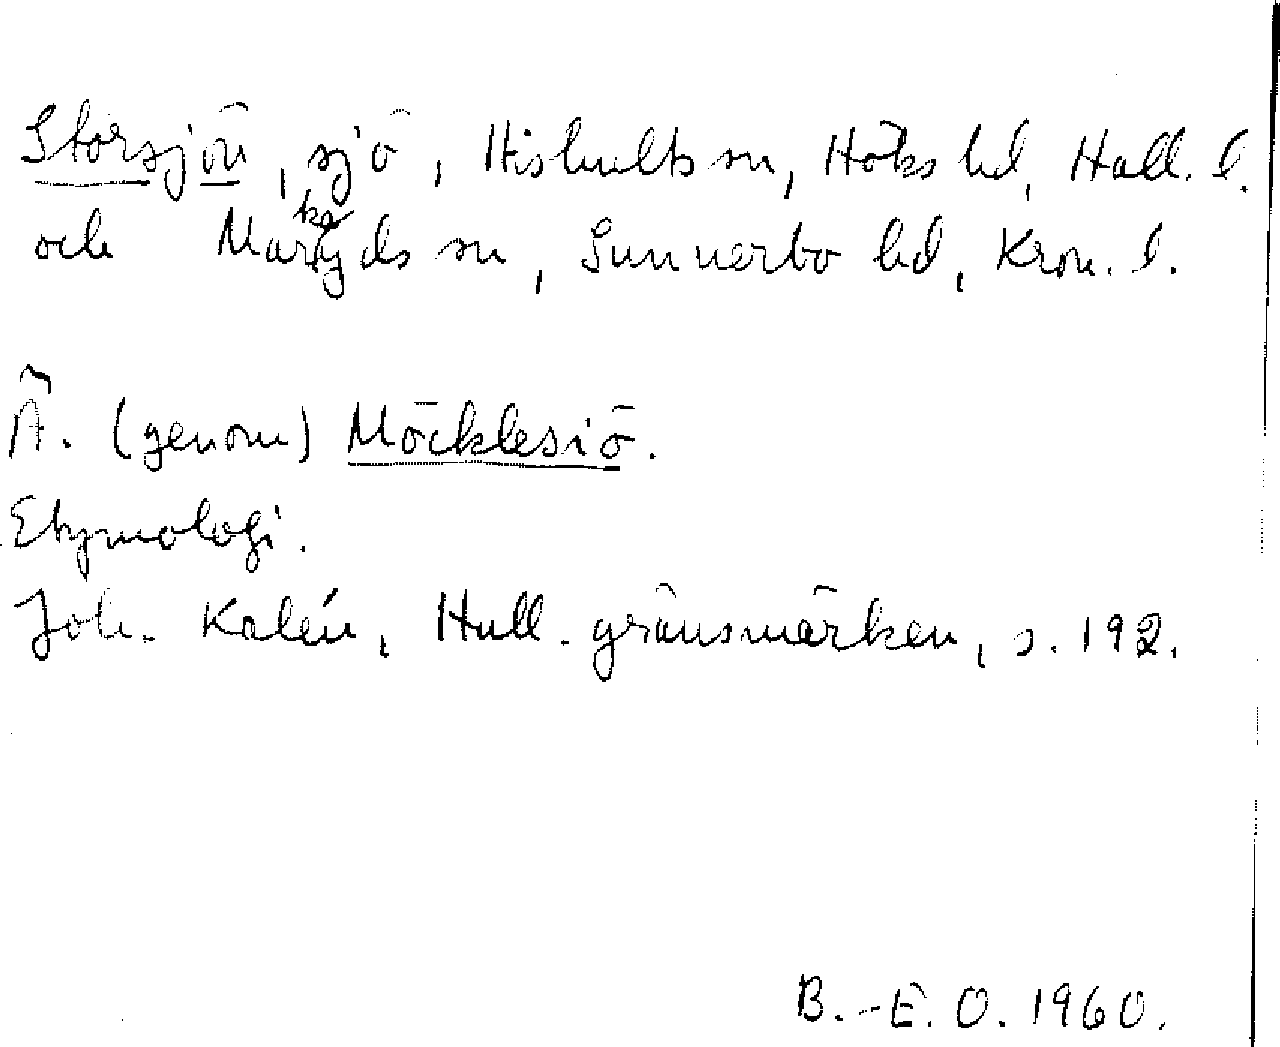 Storsjön, sjö, Hishults sn, Höks hd, Hall. l.
och Markaryds sn, Sunnerbo hd, Kron. l.
Ä. (genom) Möcklesiö.
Etymologi.
Joh. Kalén, Hall. gränsmärken, s. 192.
B.-E. O. 1960.